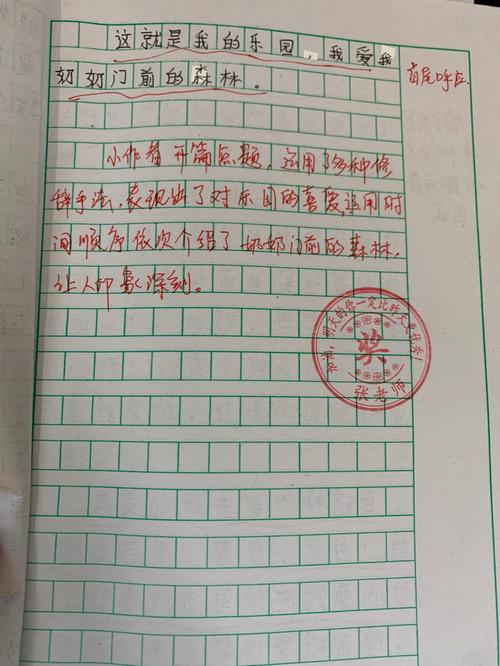 这就是我的乐园，我爱我
奶奶门前的森林。
首尾呼应
小作者开篇点题，运用了多种修
辞手法，表现出了对乐园的喜爱，运用时
间顺序依次介绍了奶奶门前的森林，
让人印象深刻。
加油，明天的你一定比昨天更优秀！
奖
张老师